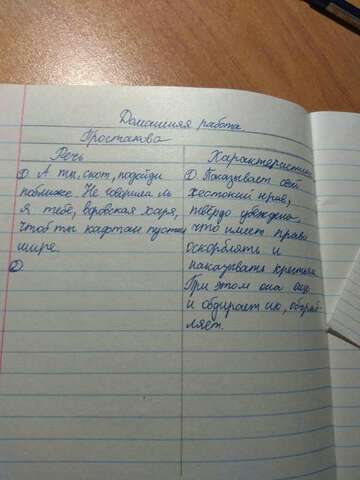 Домашняя работа
Простакова
Речь
1) А ты, скот, подойди
поближе. Не говорила ль
я тебе, воровская харя,
чтоб ты кафтан пустил
шире.
2)
Характеристика
1) Показывает свой
жестокий нрав,
твёрдо убеждена,
что имеет право
оскорблять и
наказывать крестьян
При этом она ещё
и обдирает их, оскорб
ляет.